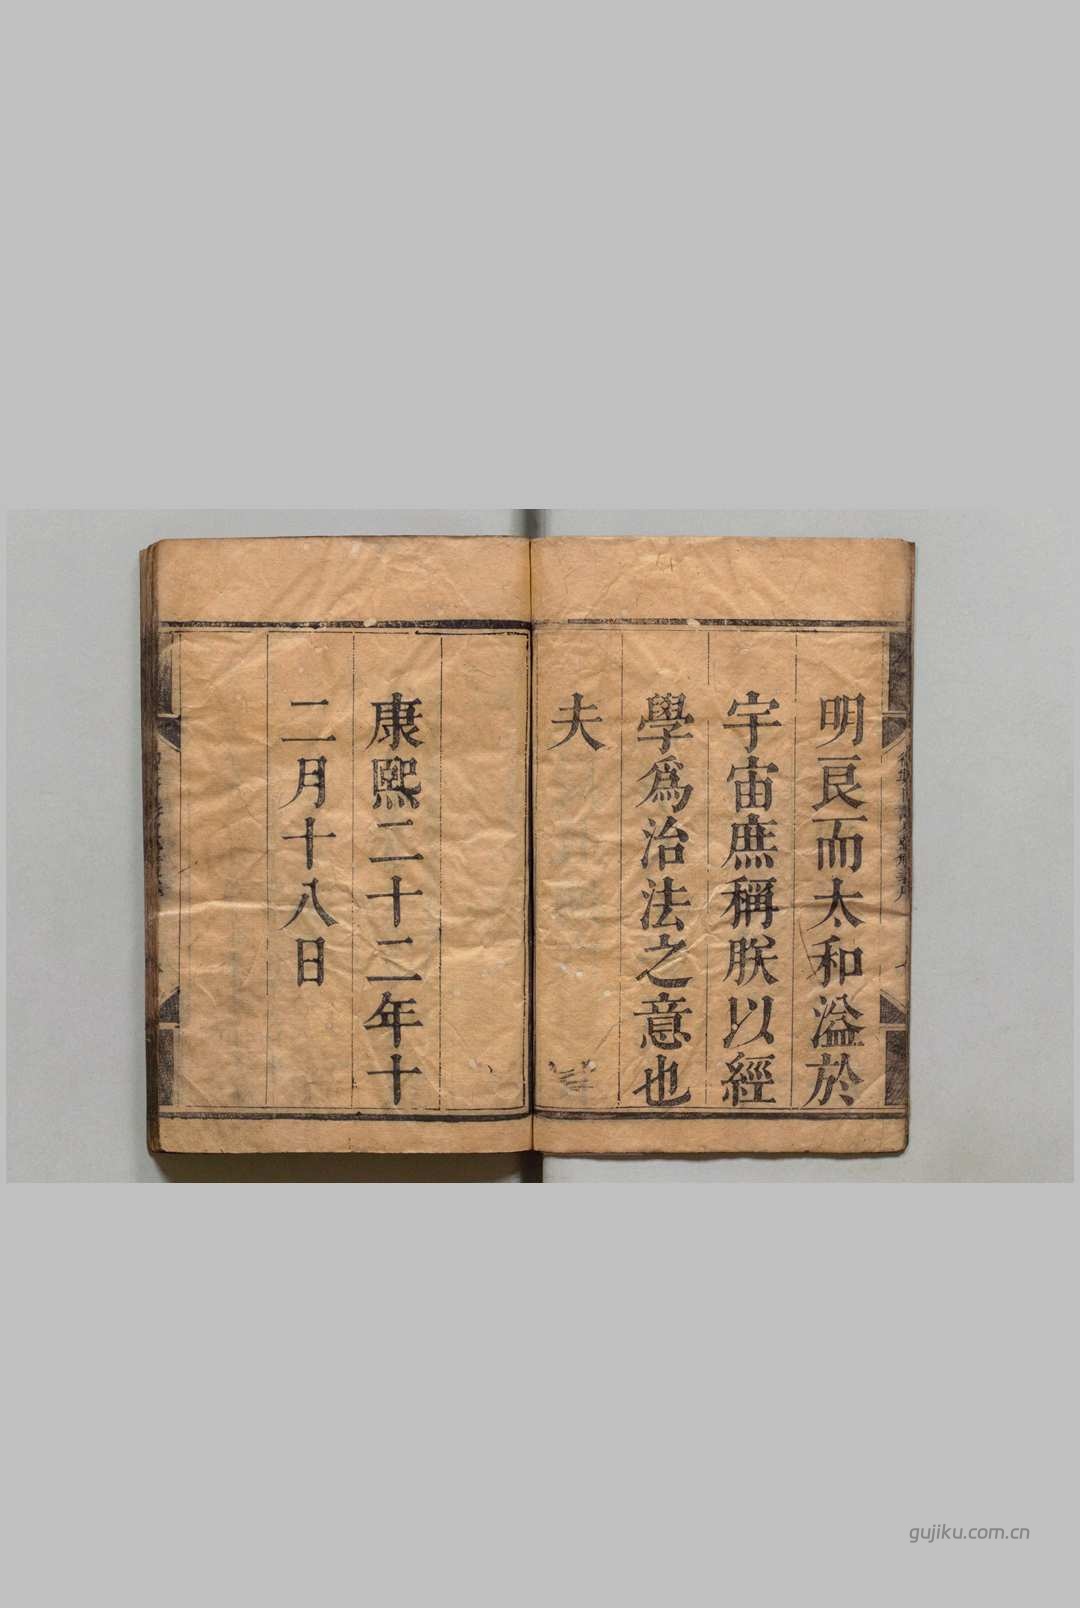 明良而太和溢於
宇宙庶稱朕以經
學爲治法之意也
夫
康熙二十二年十
二月十八日
gujiku.com.cn